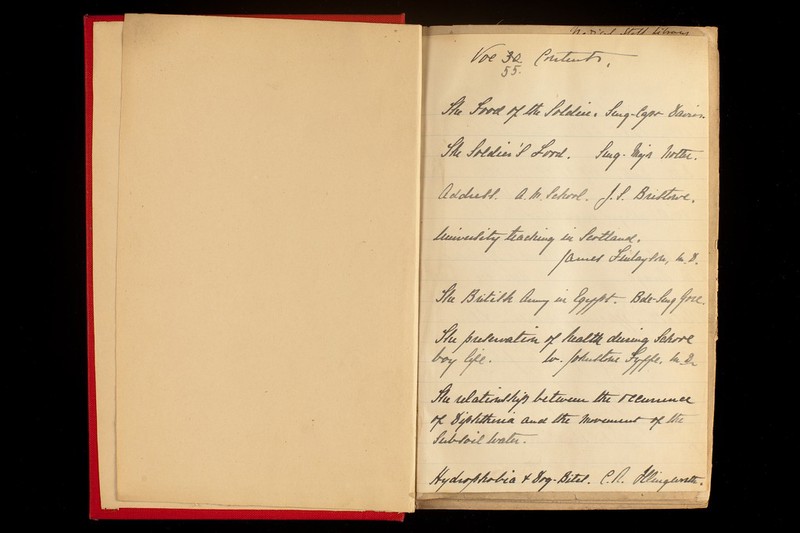 Medical Staff Library
Vol 30 Contents.
55.
The Food of the Soldier. Surg-Capt Davies.
The Soldier's Food. Surg. Major Notter.
Address. A. M. School. J. S. Bristowe.
University teaching in Scotland.
James Finlayson, M.D.
The British Army in Egypt. Bde-Surg Gore.
The preservation of health during School
boy life. W. Johnstone Fyffe. M.D.
The relationship between the occurrence
of Diphtheria and the movement of the
Subsoil water.
Hydrophobia & Dog-Bites. C. R. Illingworth.